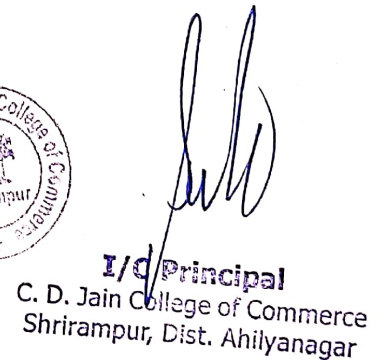 College of Commerce
I/C Principal
C. D. Jain College of Commerce
Shrirampur, Dist. Ahilyanagar